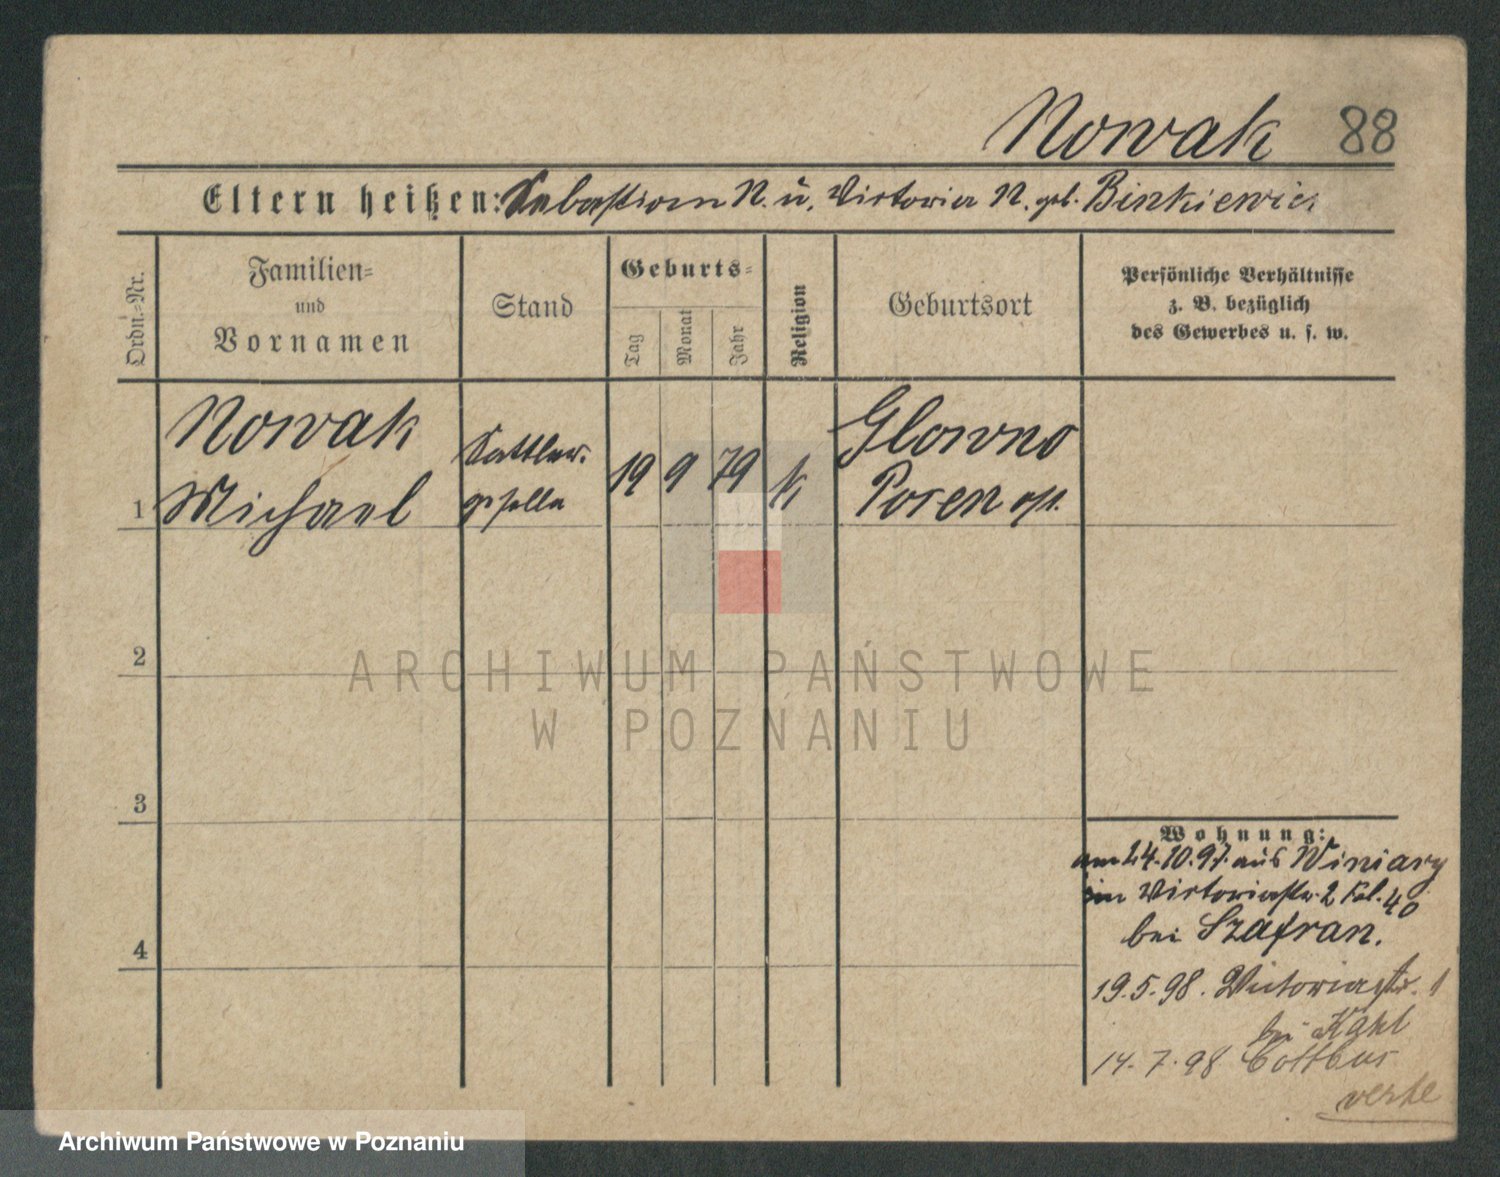 Nowak 88
Eltern heißen: Sebastian N. u. Victoria N. geb. Binkiewicz
Ordn.-Nr.
Familien-
und
Vornamen
Stand
Geburts-
Tag
Monat
Jahr
Religion
Geburtsort
Persönliche Verhältnisse
z. B. bezüglich
des Gewerbes u. s. w.
Nowak
Michael
1
Sattler-
geselle
19 9 79 k
Glowno
Posen
2
3
4
ARCHIWUM PAŃSTWOWE
W POZNANIU
Wohnung:
am 24.10.97. aus Winiary
in Victoriastr. 2 40
bei Szafran.
19.5.98. Victoriastr. 1
bei
14.7.98 Cottbus
verte
Archiwum Państwowe w Poznaniu